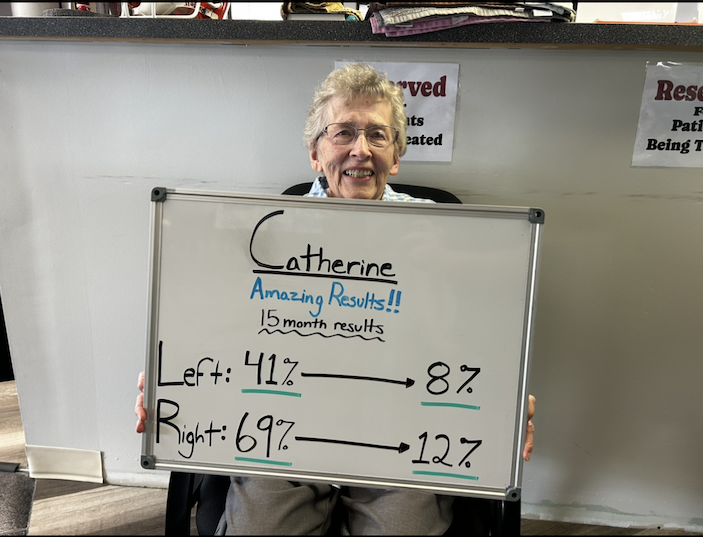 rved
nts
eated
Rese
F
Pati
Being T
Catherine
Amazing Results!!
15 month results
Left: 41% → 8%
Right: 69% → 12%